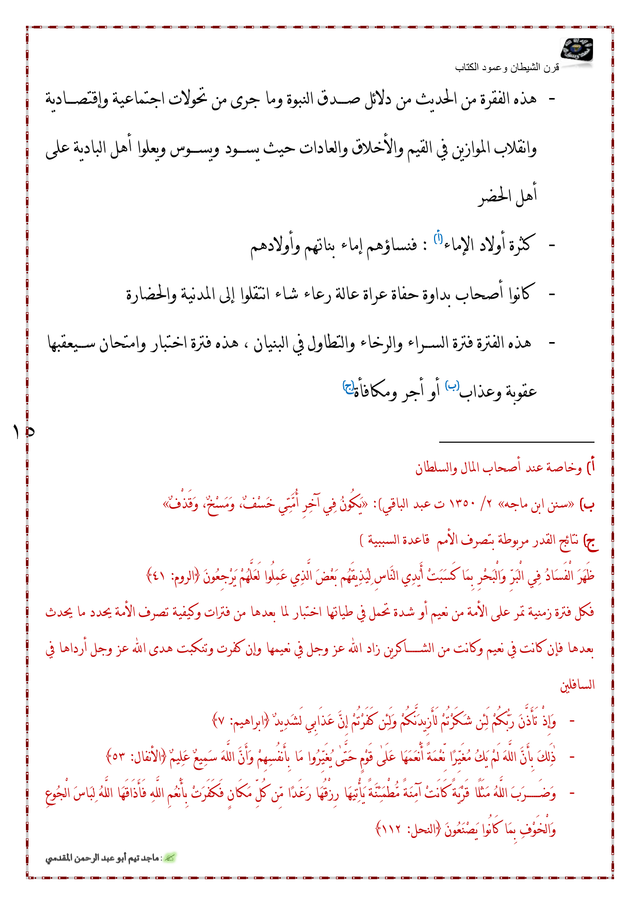 قرن الشيطان وعمود الكتاب
- هذه الفقرة من الحديث من دلائل صدق النبوة وما جرى من تحولات اجتماعية وإقتصادية
وانقلاب الموازين في القيم والأخلاق والعادات حيث يسود ويسوس ويعلوا أهل البادية على
أهل الحضر
- كثرة أولاد الإماء(أ) : فنساؤهم إماء بناتهم وأولادهم
- كانوا أصحاب بداوة حفاة عراة عالة رعاء شاء انتقلوا إلى المدنية والحضارة
- هذه الفترة فترة السراء والرخاء والتطاول في البنيان ، هذه فترة اختبار وامتحان سيعقبها
عقوبة وعذاب(ب) أو أجر ومكافأة(ج)
١٥
أ) وخاصة عند أصحاب المال والسلطان
ب) «سنن ابن ماجه» ٢/ ١٣٥٠ ت عبد الباقي): «يَكُونُ فِي آخِرِ أُمَّتِي خَسْفٌ، وَمَسْخٌ، وَقَذْفٌ»
ج) نتائج القدر مربوطة بتصرف الأمم قاعدة السببية )
ظَهَرَ الْفَسَادُ فِي الْبَرِّ وَالْبَحْرِ بِمَا كَسَبَتْ أَيْدِي النَّاسِ لِيُذِيقَهُم بَعْضَ الَّذِي عَمِلُوا لَعَلَّهُمْ يَرْجِعُونَ ﴿الروم: ٤١﴾
فكل فترة زمنية تمر على الأمة من نعيم أو شدة تحمل في طياتها اختبار لما بعدها من فترات وكيفية تصرف الأمة يحدد ما يحدث
بعدها فإن كانت في نعيم وكانت من الشاكرين زاد الله عز وجل في نعيمها وإن كفرت وتنكبت هدى الله عز وجل أرداها في
السافلين
- وَإِذْ تَأَذَّنَ رَبُّكُمْ لَئِن شَكَرْتُمْ لَأَزِيدَنَّكُمْ وَلَئِن كَفَرْتُمْ إِنَّ عَذَابِي لَشَدِيدٌ ﴿ابراهيم: ٧﴾
- ذَٰلِكَ بِأَنَّ اللَّهَ لَمْ يَكُ مُغَيِّرًا نِّعْمَةً أَنْعَمَهَا عَلَىٰ قَوْمٍ حَتَّىٰ يُغَيِّرُوا مَا بِأَنفُسِهِمْ وَأَنَّ اللَّهَ سَمِيعٌ عَلِيمٌ ﴿الأنفال: ٥٣﴾
- وَضَرَبَ اللَّهُ مَثَلًا قَرْيَةً كَانَتْ آمِنَةً مُّطْمَئِنَّةً يَأْتِيهَا رِزْقُهَا رَغَدًا مِّن كُلِّ مَكَانٍ فَكَفَرَتْ بِأَنْعُمِ اللَّهِ فَأَذَاقَهَا اللَّهُ لِبَاسَ الْجُوعِ
وَالْخَوْفِ بِمَا كَانُوا يَصْنَعُونَ ﴿النحل: ١١٢﴾
: ماجد تيم أبو عبد الرحمن المقدسي